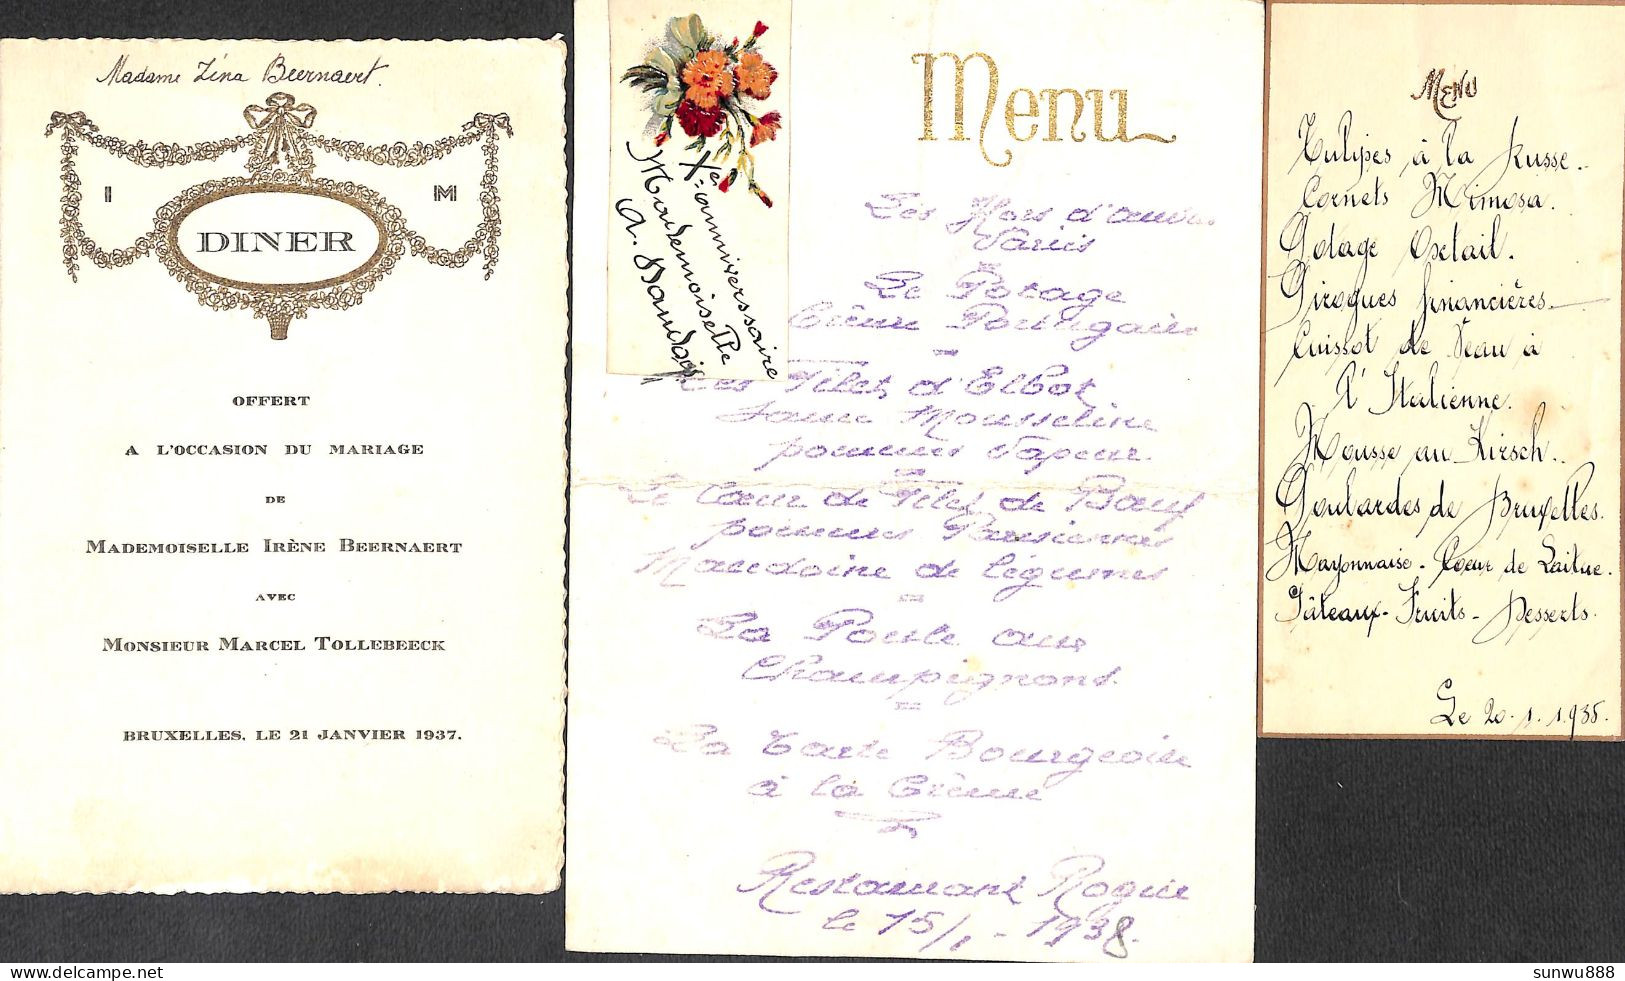 Madame Léna Beernaert.
I M
DINER
OFFERT
A L'OCCASION DU MARIAGE
DE
MADEMOISELLE IRÈNE BEERNAERT
AVEC
MONSIEUR MARCEL TOLLEBEECK
BRUXELLES, LE 21 JANVIER 1937.
Xes anniverssaire
Mademoiselle
A.
Menu
Les Hors d'œuvres
Variés
Le Potage
Crème Portugaise
Les Filets d'Elbot
Sauce Mousseline
pommes Vapeur
Le Cœur de Filet de Bœuf
pommes Parisiennes
Macédoine de légumes
La Poule aux
Champignons
La Tarte Bourgeoise
à la Crème
Restaurant Rogier
le 15/1 - 1938.
MENU
Tulipes à la Russe.
Cornets Mimosa.
Potage Oxtail.
Pirogues financières
Cuissot de Veau à
l'Italienne.
Mousse au Kirsch.
Poulardes de Bruxelles.
Mayonnaise - Cœur de Laitue.
Gâteaux - Fruits - Desserts.
Le 20.1.1935.
sunwu888